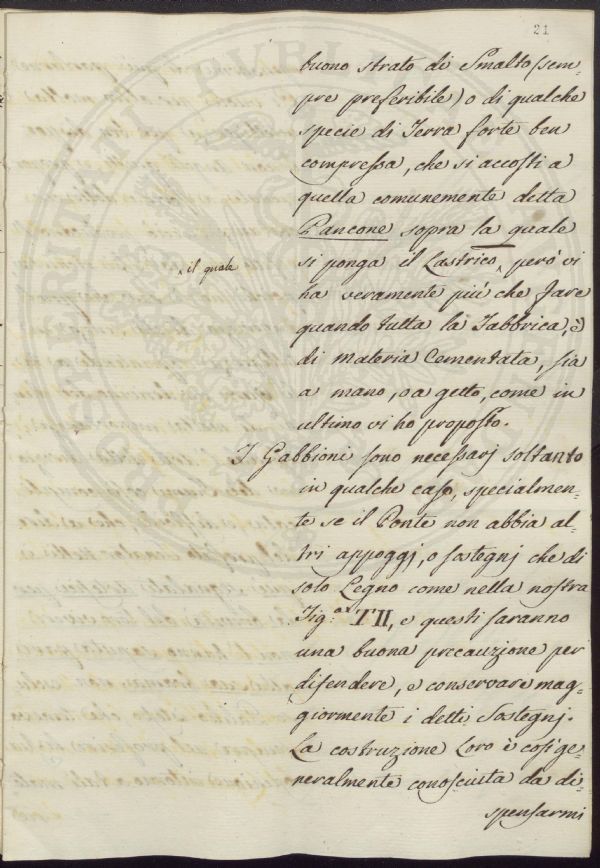 21
buono strato di Smalto (sem-
pre preferibile) o di qualche
specie di Terra forte ben
compressa, che si accosti a
quella comunemente detta
Pancone sopra la quale
si ponga il Lastrico ^ però vi
^ il quale
ha veramente più che fare
quando tutta la Fabbrica, è
di materia Cementata, sia
a mano, o a getto, come in
ultimo vi ho proposto.
I Gabbioni sono necessarj soltanto
in qualche caso, specialmen-
te se il Ponte non abbia al-
tri appoggj, o sostegnj che di
solo Legno come nella nostra
Fig.ª III, e questi saranno
una buona precauzione per
difendere, e conservare mag-
giormente i detti Sostegnj.
La costruzione Loro è così ge-
neralmente conosciuta da di-
spensarmi